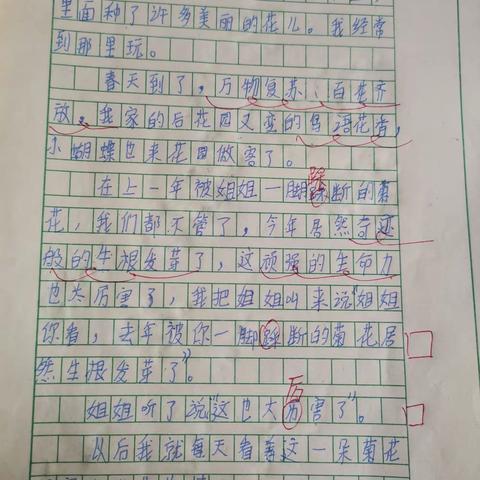 里面种了许多美丽的花儿。我经常
到那里玩。
春天到了，万物复苏，百花齐
放，我家的后花园又变的鸟语花香，
小蝴蝶也来花园做客了。
踩
在上一年被姐姐一脚踩断的菊
花，我们都不管了，今年居然奇迹
般的生根发芽了，这顽强的生命力
也太厉害了，我把姐姐叫来说“姐姐
你看，去年被你一脚踩断的菊花居
然生根发芽了”。
厉
姐姐听了说“这也太厉害了”。
以后我就每天看着这一朵菊花